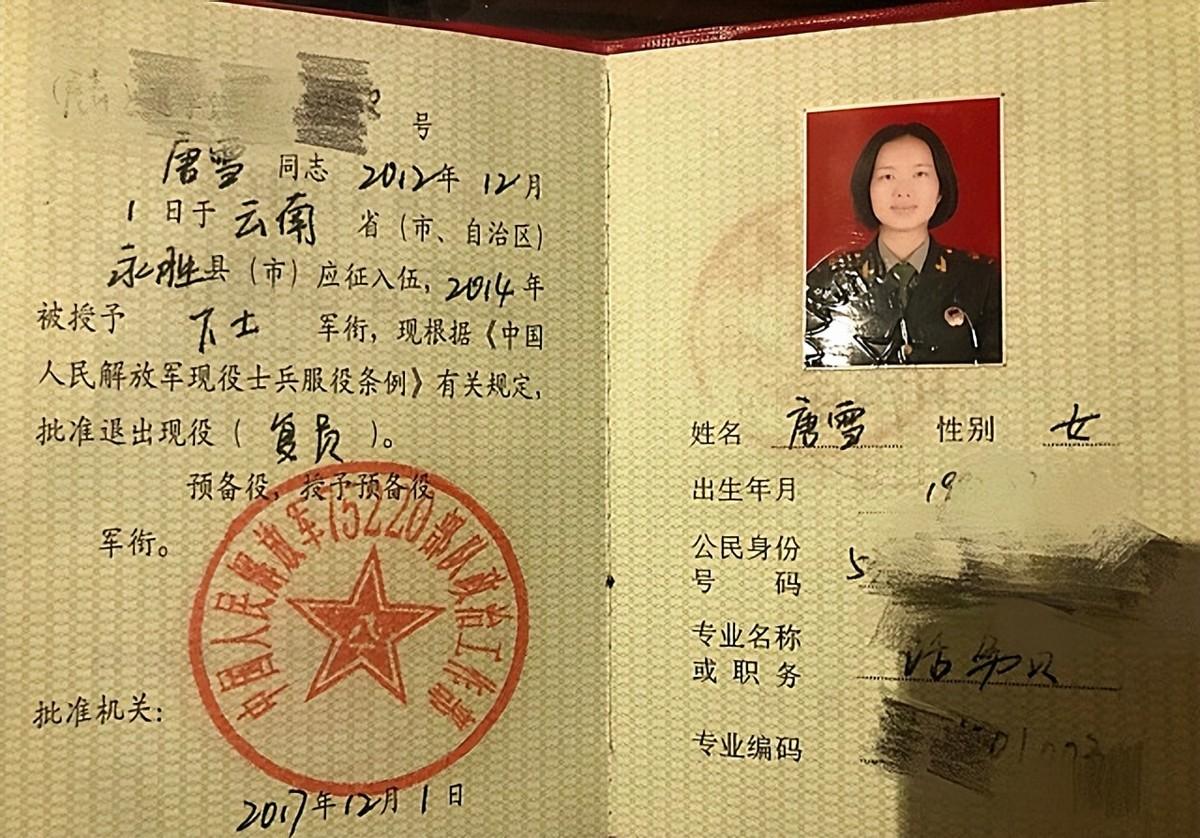 号
唐雪 同志 2012年 12月
1 日于 云南 省（市、自治区）
永胜县（市）应征入伍，2014年
被授予 下士 军衔，现根据《中国
人民解放军现役士兵服役条例》有关规定，
批准退出现役（ 复员 ）。
预备役，授予预备役
军衔。
中国人民解放军75220部队政治工作部
批准机关：
2017年12月1日
姓名 唐雪 性别 女
出生年月 19
公民身份
号 码 5
专业名称
或职务 话务员
专业编码